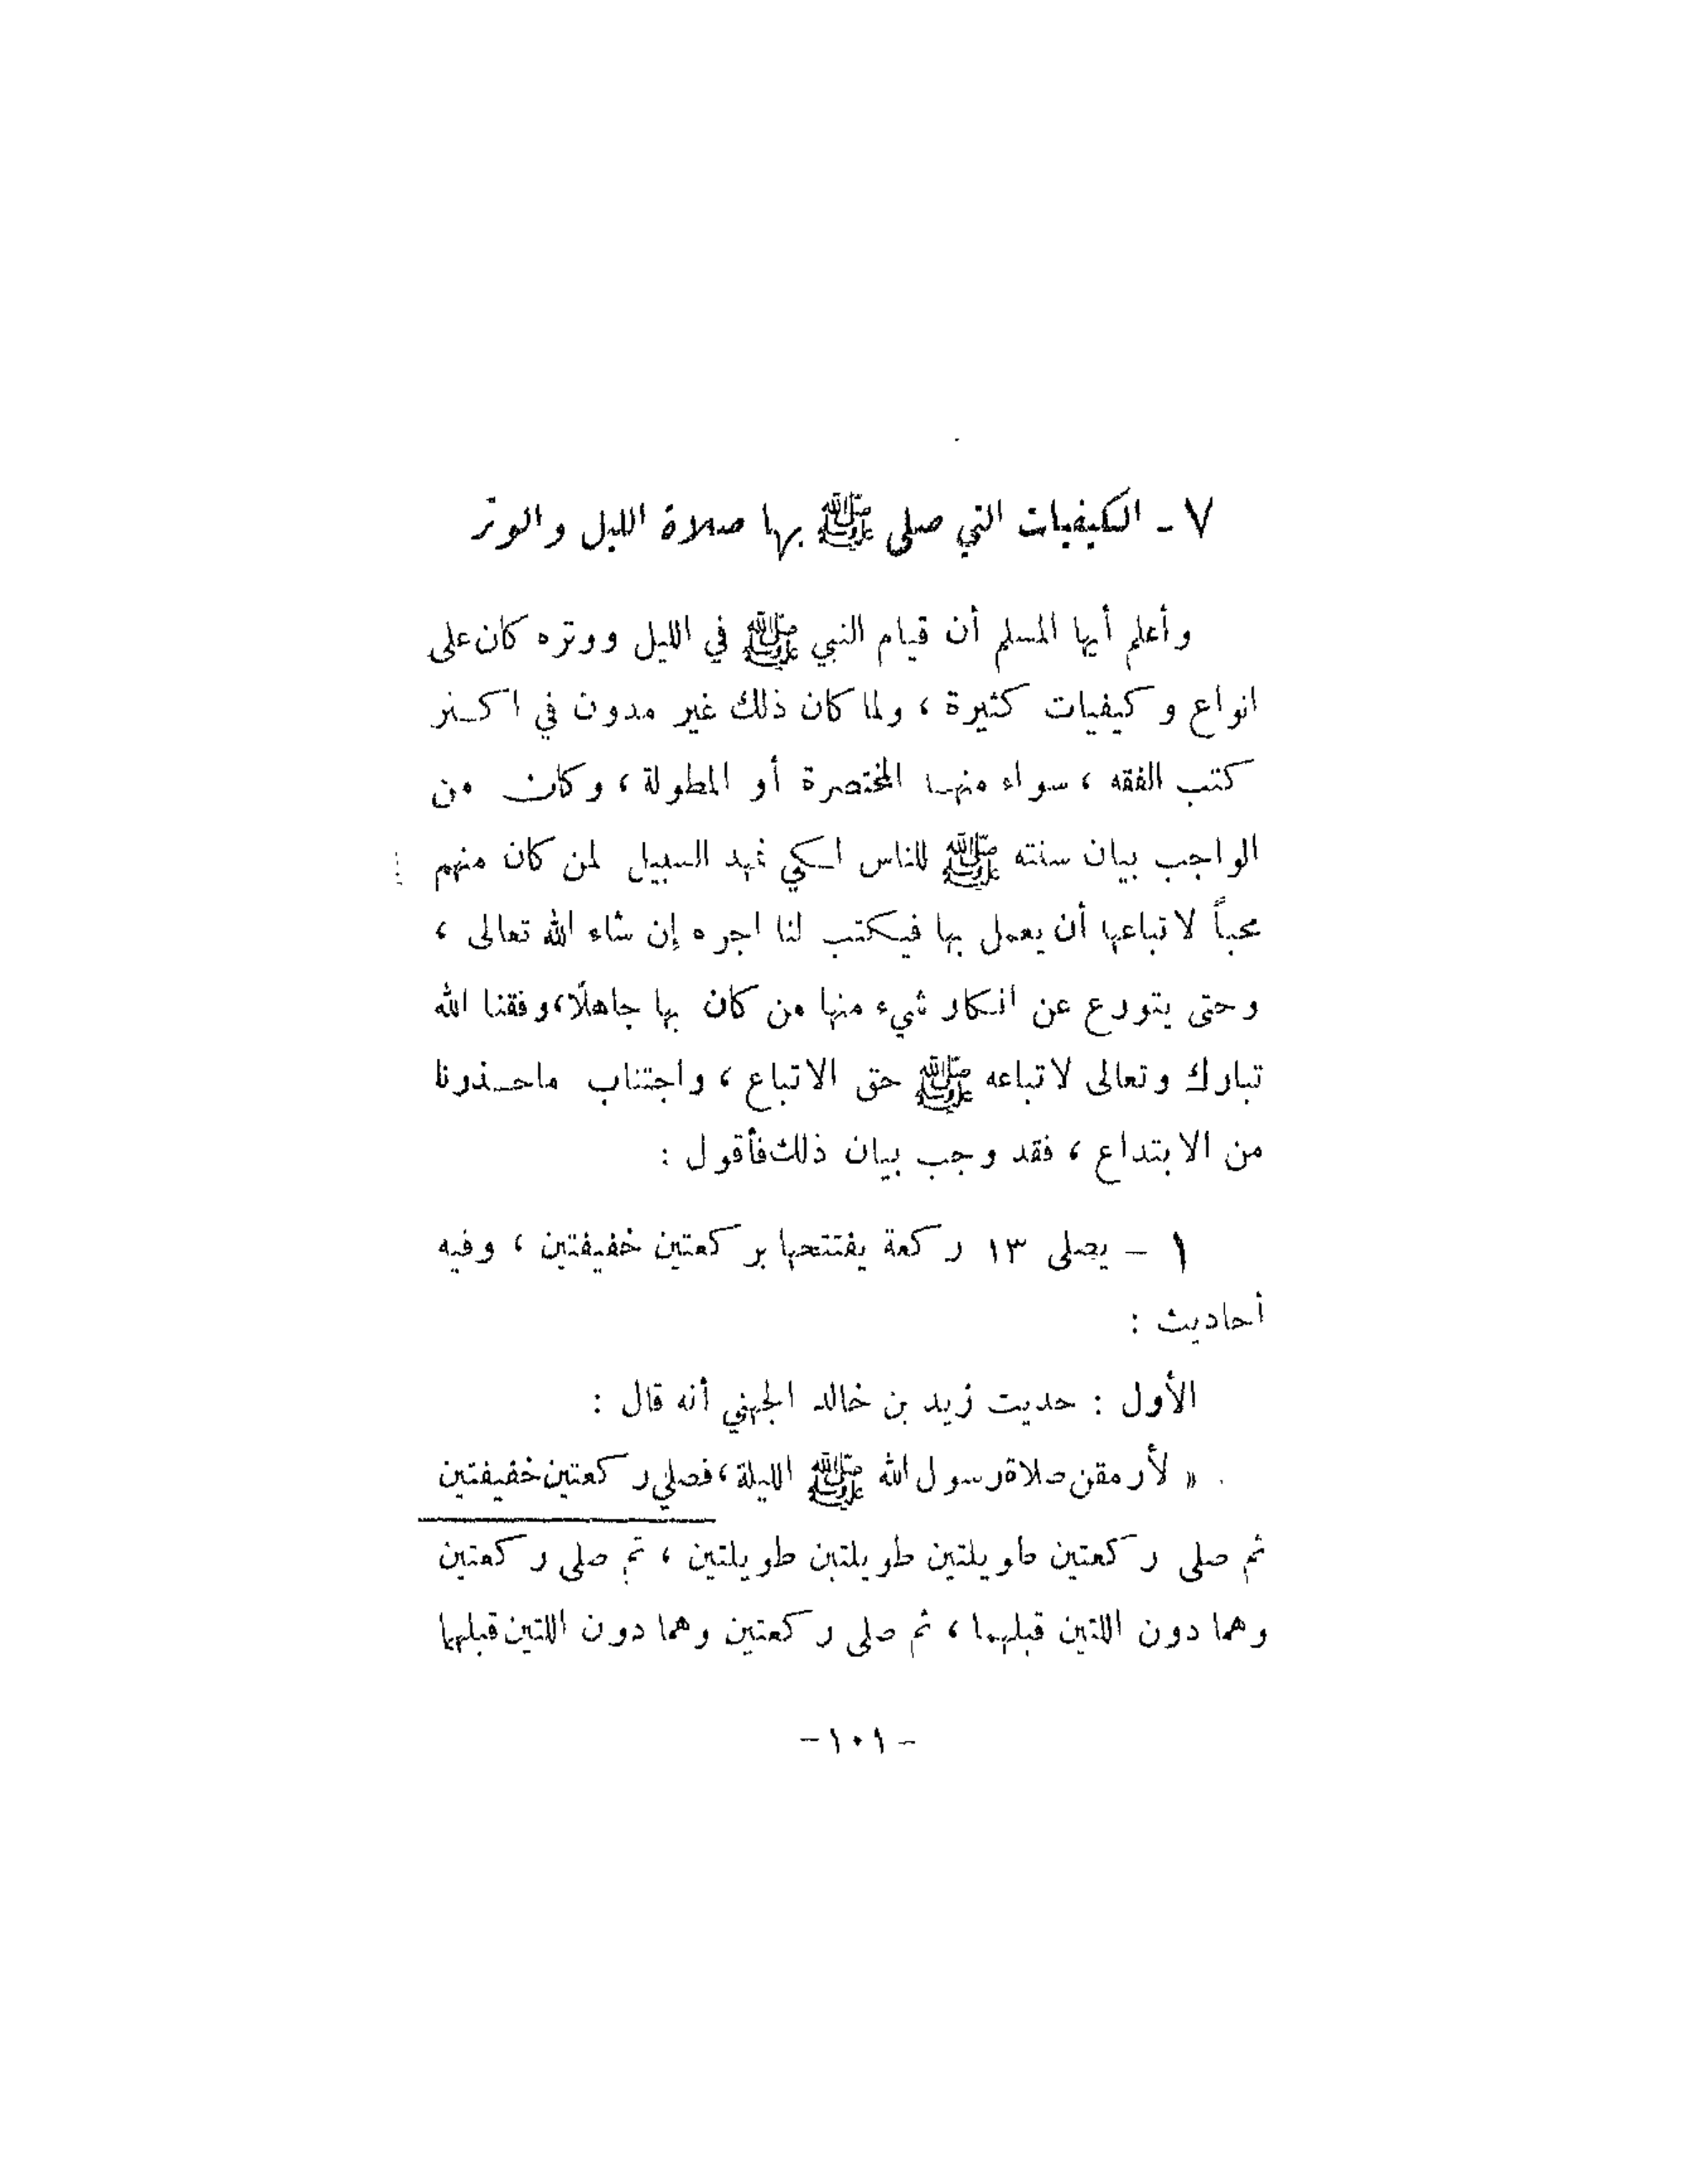 ٧ ـ الكيفيات التي صلى ﷺ بها صلاة الليل والوتر
وأعلم أيها المسلم أن قيام النبي ﷺ في الليل ووتره كان على
انواع وكيفيات كثيرة ، ولما كان ذلك غير مدون في اكثر
كتب الفقه ، سواء منها المختصرة أو المطولة ، وكان من
الواجب بيان سنته ﷺ للناس لكي نمهد السبيل لمن كان منهم
محباً لاتباعها أن يعمل بها فيكتب لنا اجره إن شاء الله تعالى ،
وحتى يتورع عن انكار شيء منها من كان بها جاهلًا، وفقنا الله
تبارك وتعالى لاتباعه ﷺ حق الاتباع ، واجتناب ماحذرنا
من الابتداع ، فقد وجب بيان ذلك فأقول :
١ – يصلى ١٣ ركعة يفتتحها بركعتين خفيفتين ، وفيه
أحاديث :
الأول : حديث زيد بن خالد الجهني أنه قال :
« لأرمقن صلاة رسول الله ﷺ الليلة ، فصلى ركعتين خفيفتين
ثم صلى ركعتين طويلتين طويلتين طويلتين ، ثم صلى ركعتين
وهما دون اللتين قبلهما ، ثم صلى ركعتين وهما دون اللتين قبلهما
-١٠١-